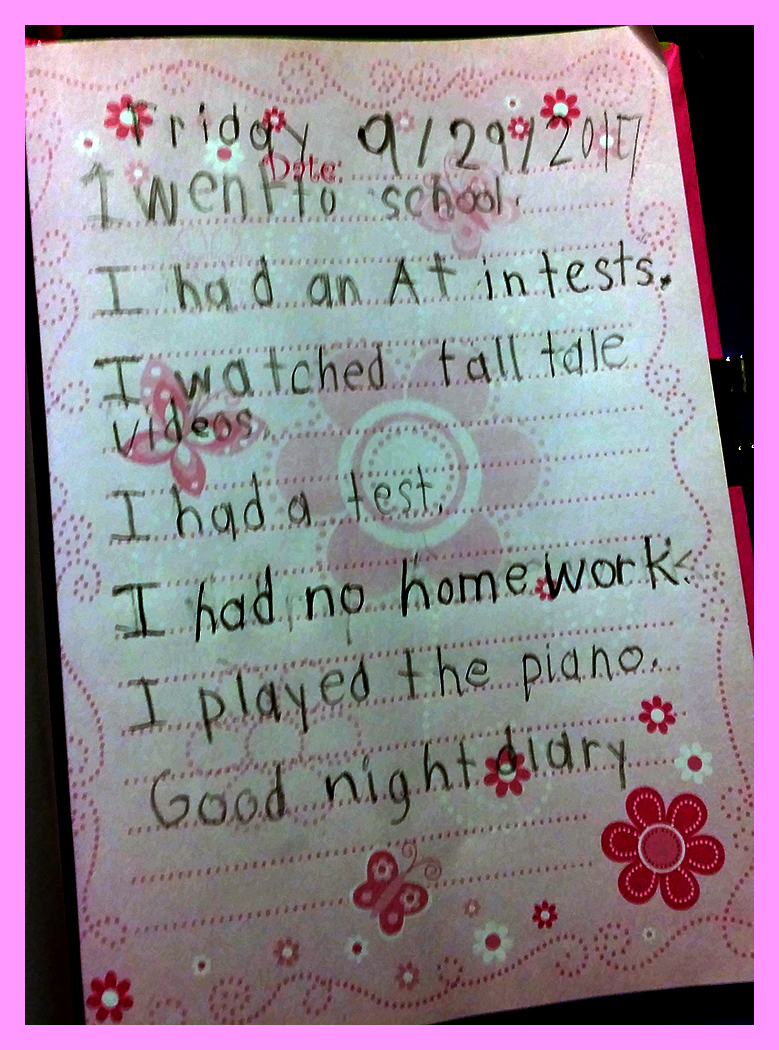 Friday 9/29/2017
Date:
I went to school.
I had an A+ in tests.
I watched tall tale
videos.
I had a test.
I had no homework.
I played the piano.
Good night diary